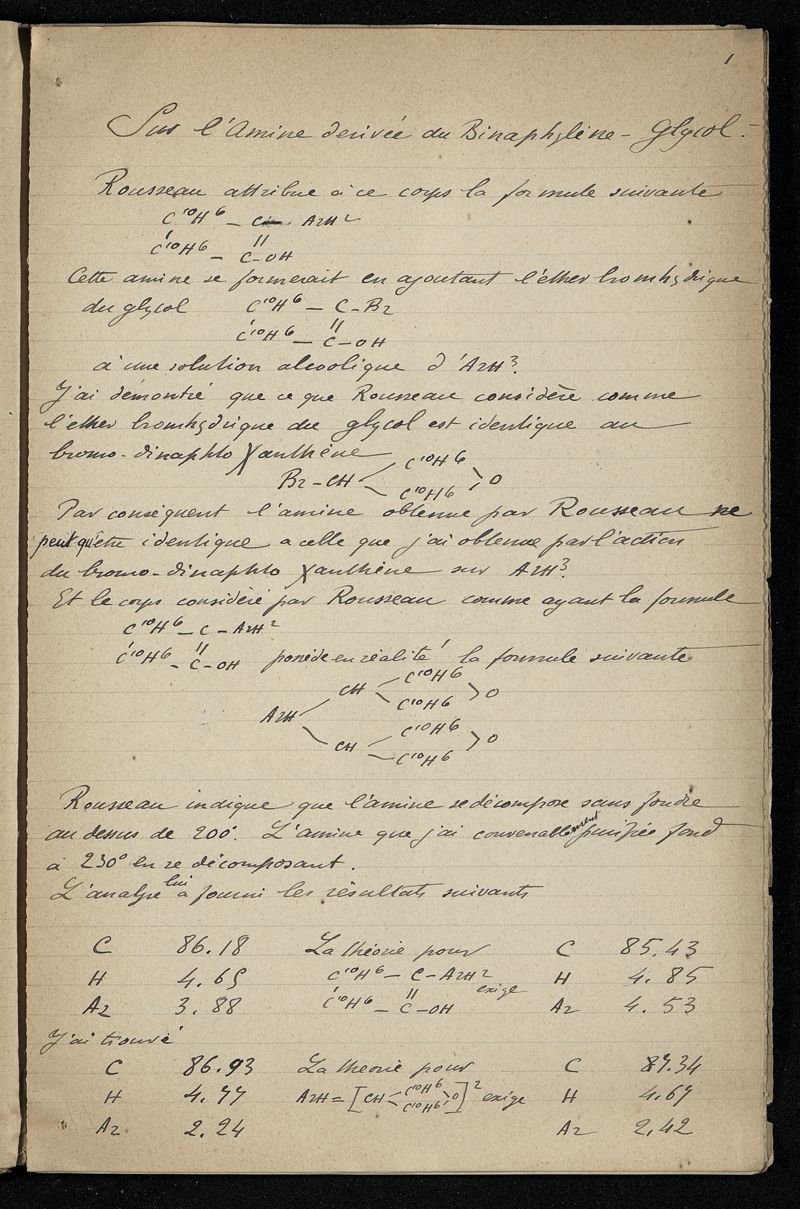 1
Sur l'Amine derivée du Binaphylène-Glycol.
Rousseau attribue à ce corps la formule suivante
C¹⁰H⁶ – C – AzH²
C¹⁰H⁶ – C – OH
Cette amine se formerait en ajoutant l'éther bromhydrique
du glycol C¹⁰H⁶ – C – Bz
C¹⁰H⁶ – C – OH
à une solution alcoolique d'AzH³.
J'ai démontré que ce que Rousseau considère comme
l'éther bromhydrique du glycol est identique au
bromo-dinaphto Xanthène
Bz – CH < C¹⁰H⁶ C¹⁰H⁶ > O
Par conséquent l'amine obtenue par Rousseau ne
peut qu'être identique a celle que j'ai obtenue par l'action
du bromo-dinaphto Xanthène sur AzH³.
Et le corps considéré par Rousseau comme ayant la formule
C¹⁰H⁶ – C – AzH²
C¹⁰H⁶ – C – OH possède en réalité la formule suivante
CH < C¹⁰H⁶ C¹⁰H⁶ > O
AzH
CH < C¹⁰H⁶ C¹⁰H⁶ > O
Rousseau indique que l'amine se décompose sans fondre
au dessus de 200°. L'amine que j'ai convenablement purifiée fond
à 230° en se décomposant.
L'analyse lui a fourni les résultats suivants
C 86.18 La théorie pour C 85.43
H 4.65 C¹⁰H⁶ – C – AzH² exige H 4.85
Az 3.88 C¹⁰H⁶ – C – OH Az 4.53
J'ai trouvé
C 86.93 La theorie pour C 87.34
H 4.77 AzH = [CH < C¹⁰H⁶ C¹⁰H⁶ > O]² exige H 4.67
Az 2.24 Az 2.42